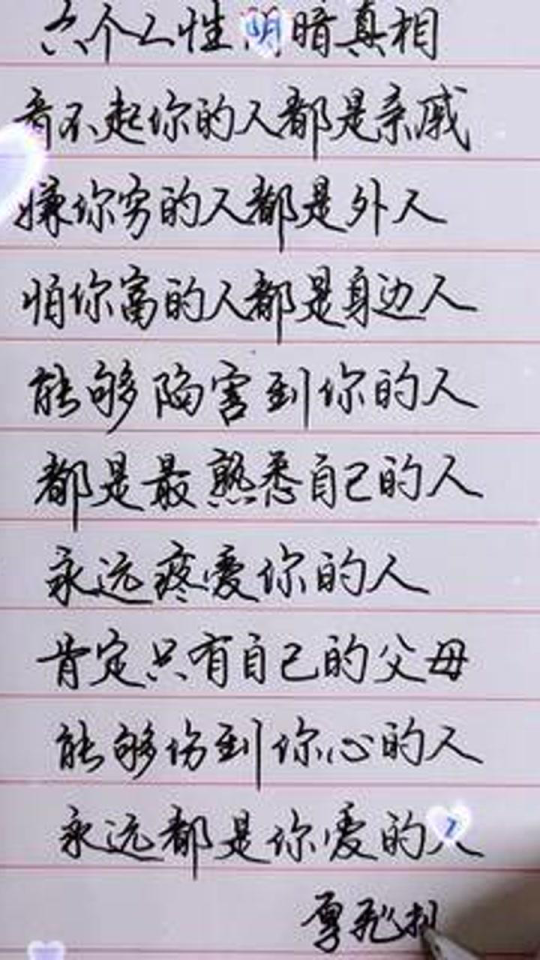 六个人性阴暗真相
看不起你的人都是亲戚
嫌你穷的人都是外人
怕你富的人都是身边人
能够陷害到你的人
都是最熟悉自己的人
永远疼爱你的人
肯定只有自己的父母
能够伤到你心的人
永远都是你爱的人